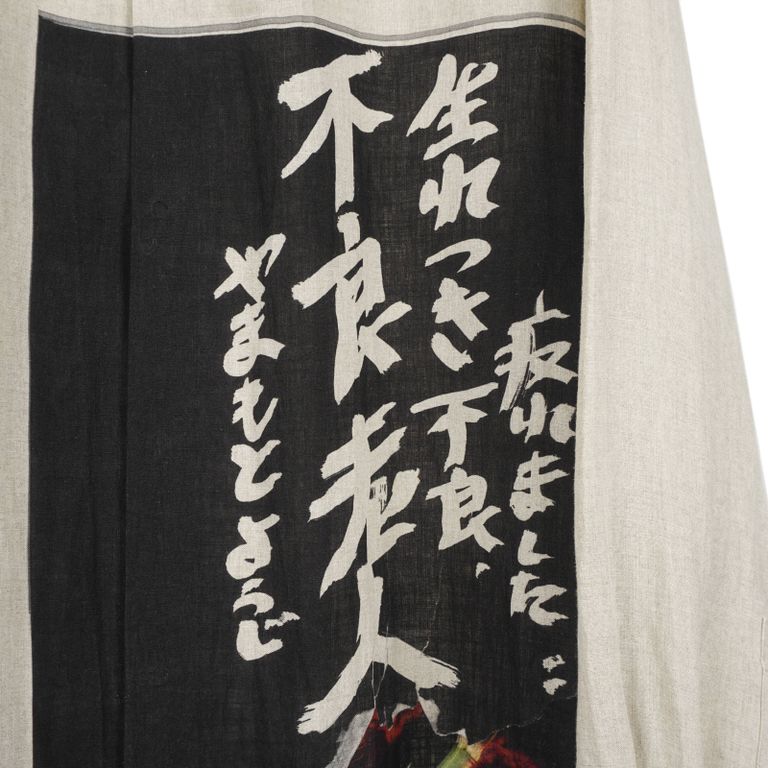 疲れました‥
生れつき不良、
不良老人
やまもとようじ